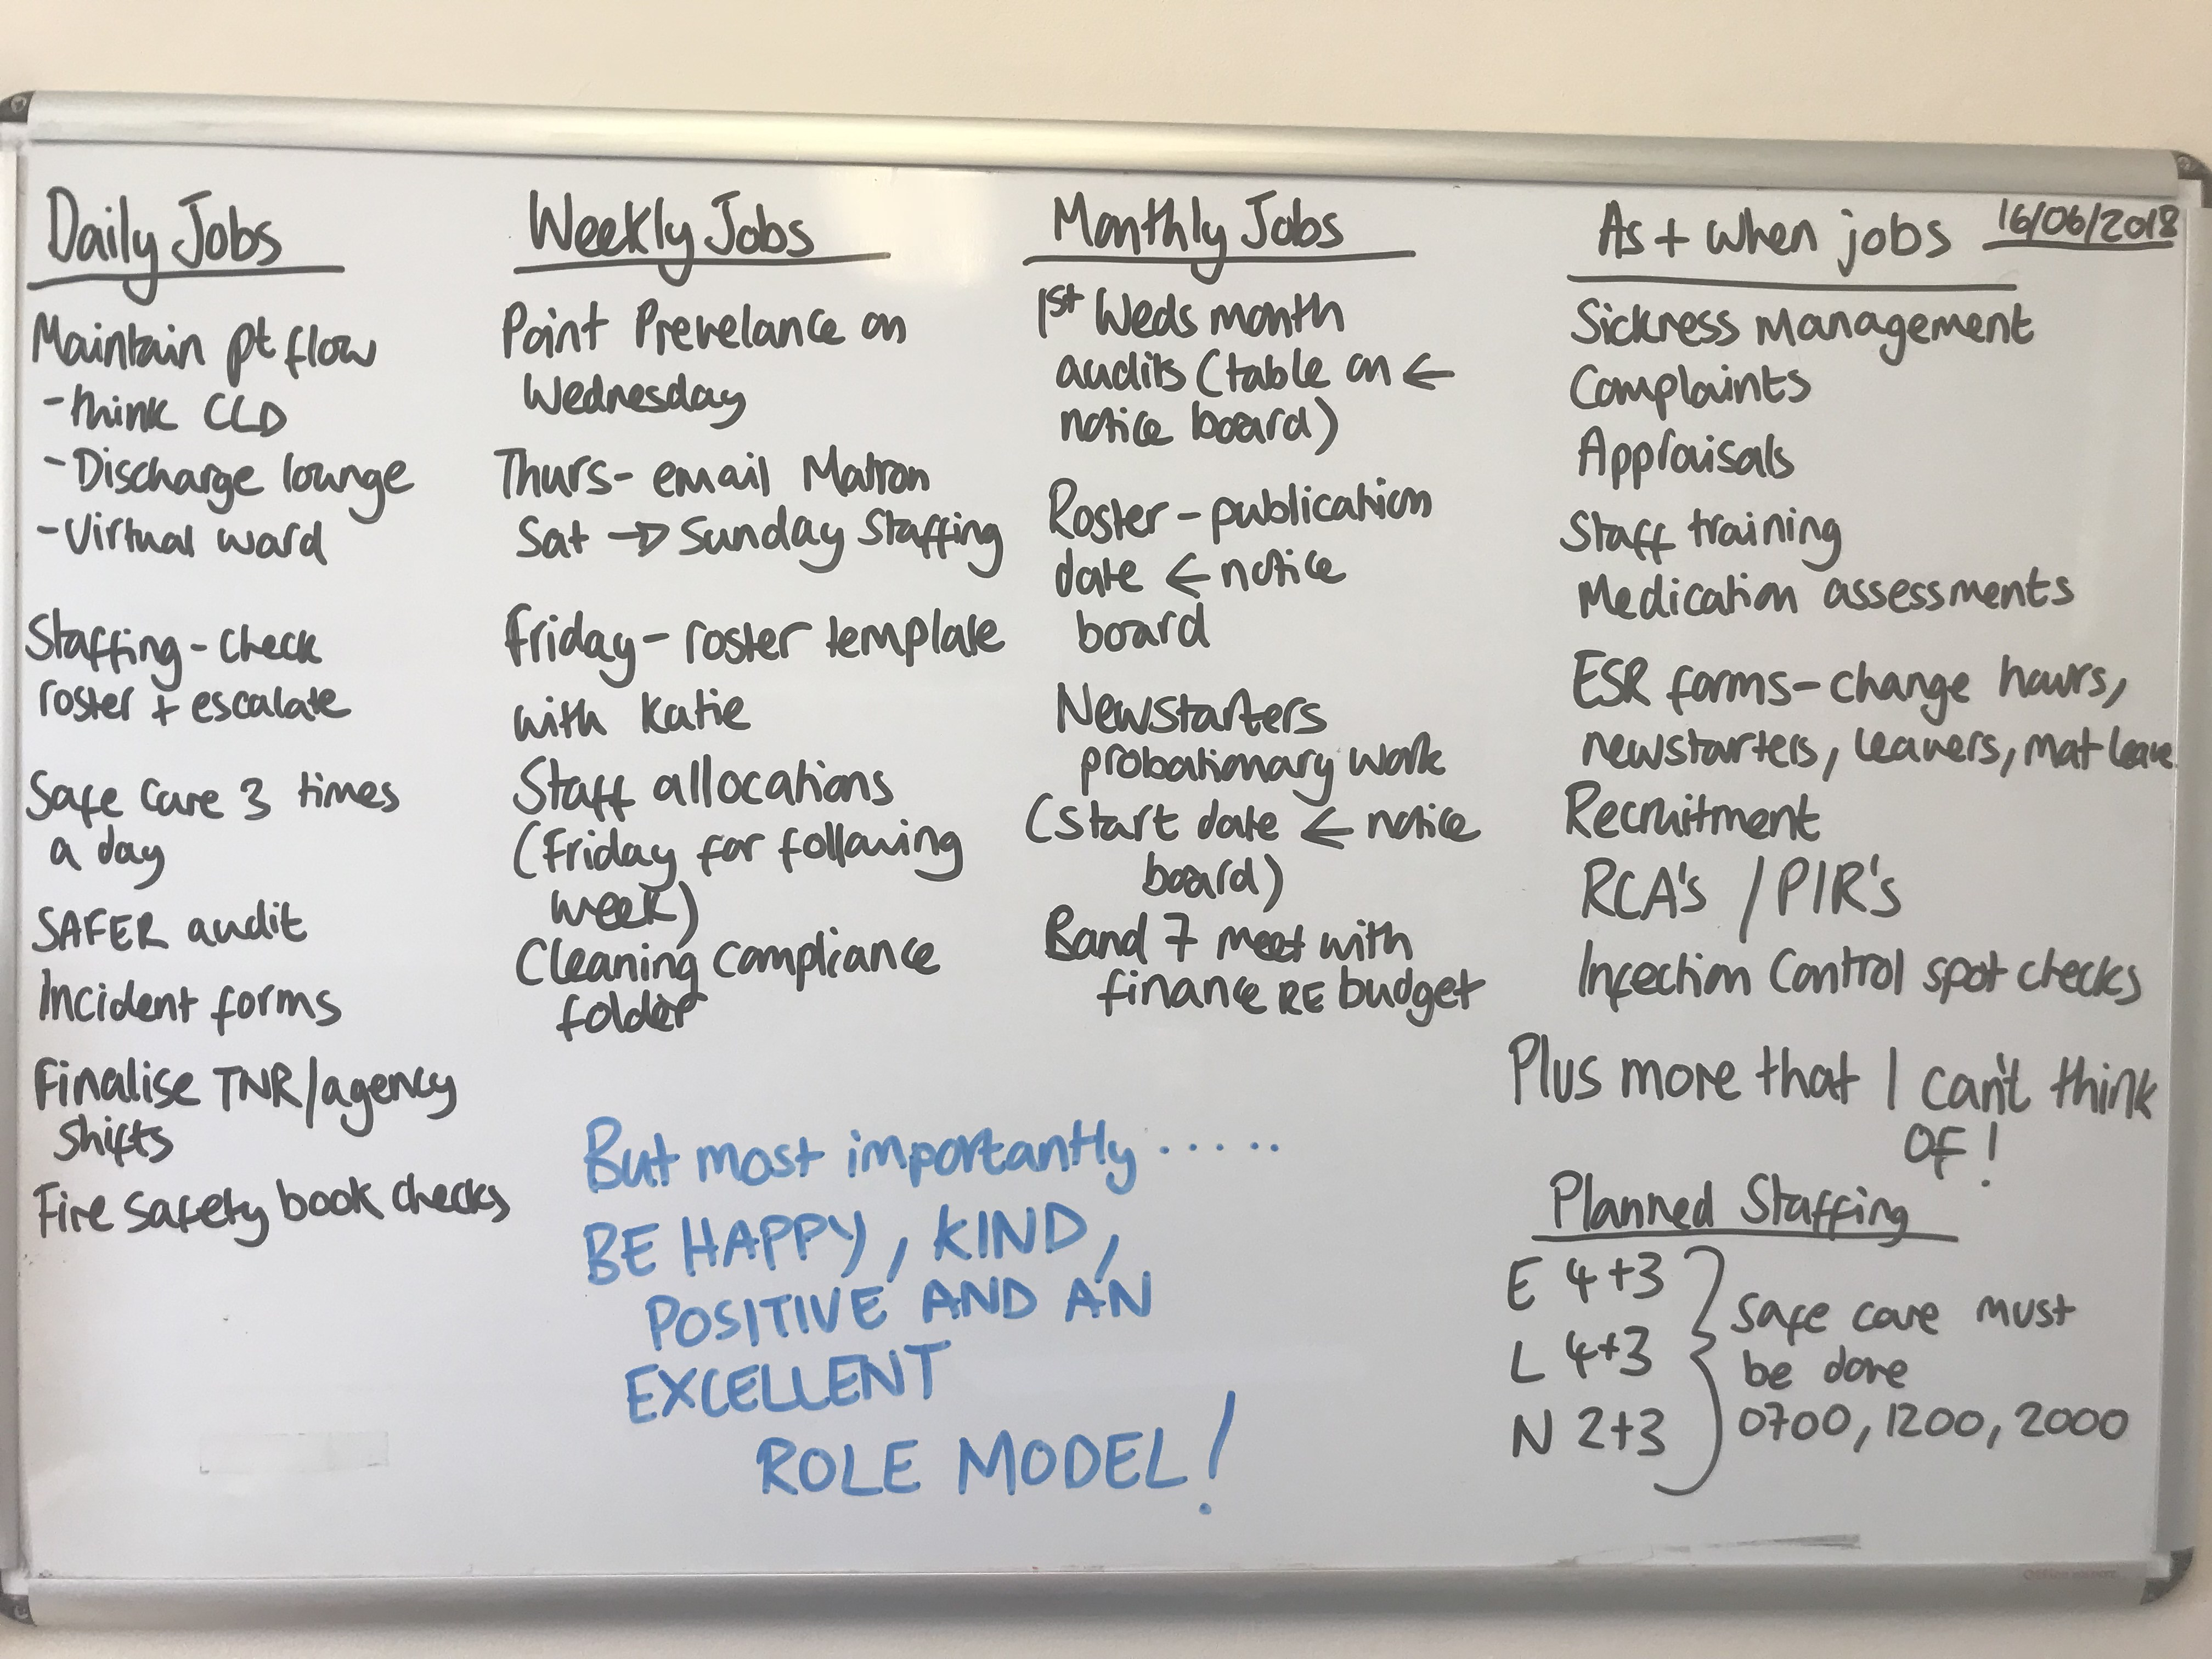 Daily Jobs
Maintain pt flow
- think CLD
- Discharge lounge
- Virtual ward
Staffing - check
roster + escalate
Safe Care 3 times
a day
SAFER audit
Incident forms
Finalise TNR/agency
shifts
Fire safety book checks
Weekly Jobs
Point Prevelance on
Wednesday
Thurs - email Matron
Sat → Sunday Staffing
Friday - roster template
with Katie
Staff allocations
(Friday for following
week)
Cleaning compliance
folder
Monthly Jobs
1st Weds month
audits (table on ←
notice board)
Roster - publication
date ← notice
board
Newstarters
probationary work
(start date ← notice
board)
Band 7 meet with
finance RE budget
As + when jobs
16/06/2018
Sickness Management
Complaints
Appraisals
Staff training
Medication assessments
ESR forms - change hours,
newstarters, leavers, mat leave
Recruitment
RCA's / PIR's
Infection Control spot checks
Plus more that I can't think
OF!
Planned Staffing
E 4+3
L 4+3
N 2+3
Safe care must
be done
0700, 1200, 2000
But most importantly ......
BE HAPPY, KIND,
POSITIVE AND AN
EXCELLENT
ROLE MODEL!